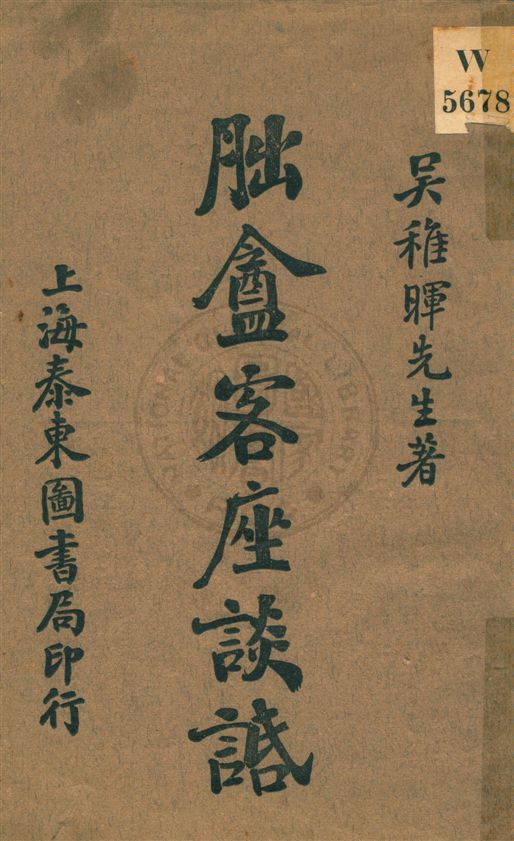 吴稚暉先生著
朏盦客座談話
上海泰東圖書局印行
W
5678